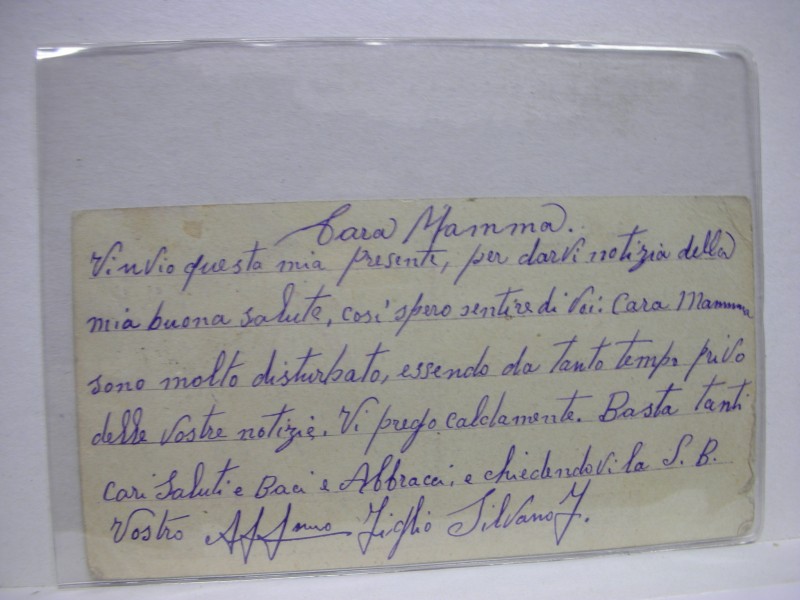 Cara Mamma.
Vi invio questa mia presente, per darvi notizia della
mia buona salute, così spero sentire di Voi: Cara Mamma
sono molto disturbato, essendo da tanto tempo privo
delle vostre notizie. Vi prego caldamente. Basta tanti
cari Saluti e Baci e Abbracci, e chiedendovi la S. B.
Vostro Aff.mo Figlio Silvano F.